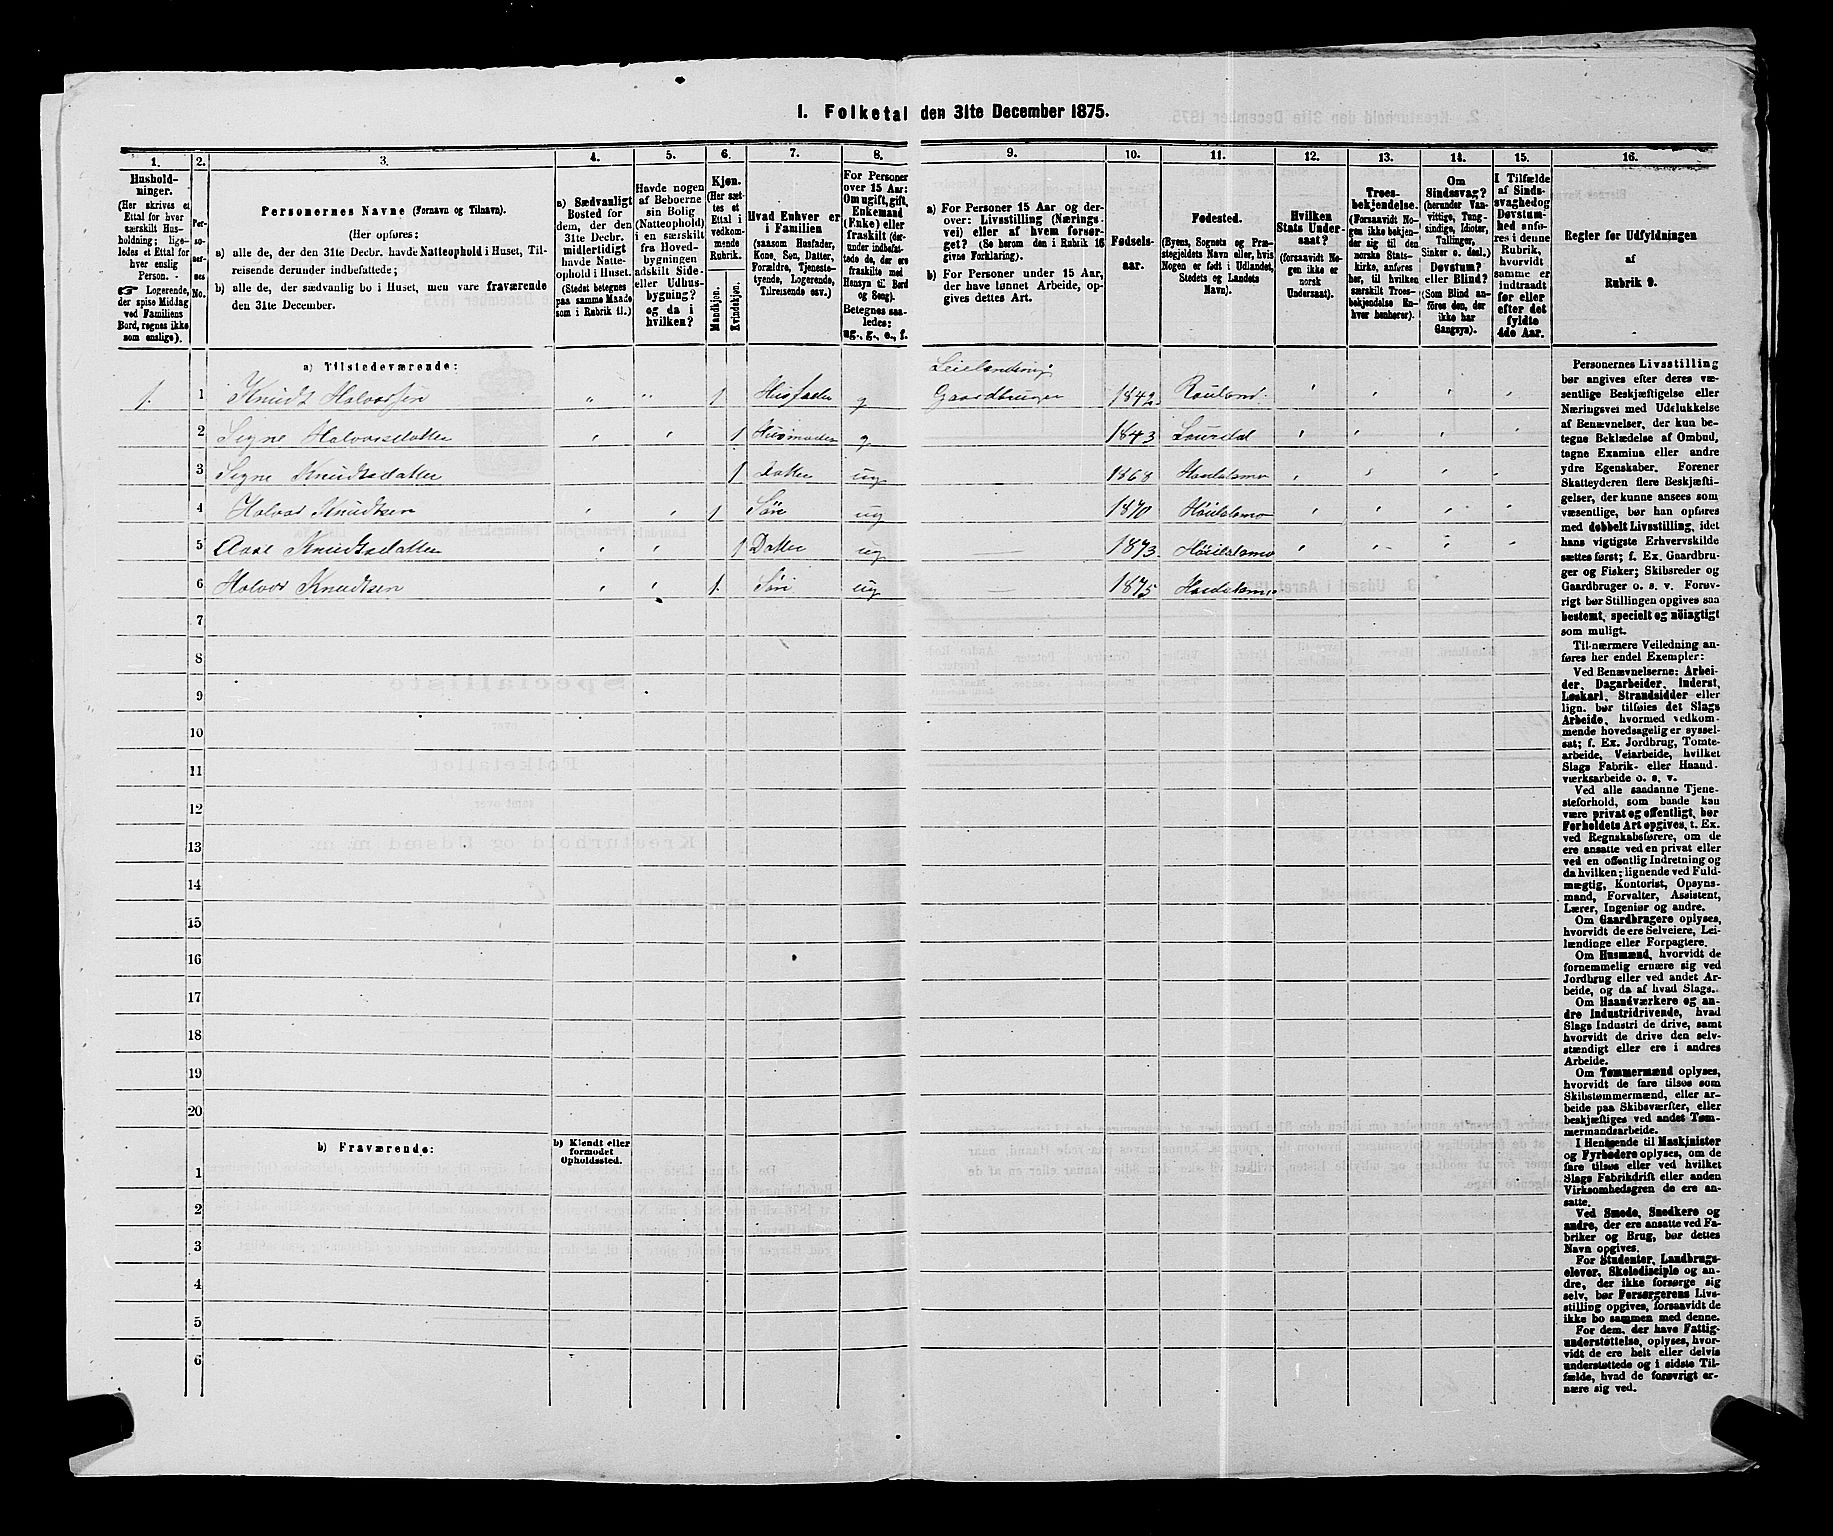 1. Folketal den 31te December 1875.
1.
2.
3.
4.
5.
6.
7.
8.
9.
10.
11.
12.
13.
14.
15.
16.
Hushold-
ninger.
(Her skrives et
Ettal for hver
særskilt Hus-
holdning; lige-
ledes et Ettal for
hver enslig
Person.
Logerende,
der spise Middag
ved Familiens
Bord, regnes ikke
som enslige).
Per-
so-
ner-
nes
No.
Personernes Navne (Fornavn og Tilnavn).
(Her opføres:
a) alle de, der den 31te Decbr. havde Natteophold i Huset, Til-
reisende derunder indbefattede;
b) alle de, der sædvanlig bo i Huset, men vare fraværende
den 31te December.
a) Sædvanligt
Bosted for
dem, der den
31te Decbr.
midlertidigt
havde Natte-
ophold i Huset.
(Stedet betegnes
paa samme Maade
som i Rubrik 11.)
Havde nogen
af Beboerne
sin Bolig
(Natteophold)
i en særskilt
fra Hoved-
bygningen
adskilt Side-
eller Udhus-
bygning?
og da i
hvilken?
Kjøn.
(Her sæt-
tes et
Ettal i
vedkom-
mende
Rubrik.
Mandkjøn.
Kvindekjøn.
Hvad Enhver er
i Familien
(saasom Husfader,
Kone, Søn, Datter,
Forældre, Tjeneste-
tyende, Logerende,
Tilreisende osv.)
For Personer
over 15 Aar:
Om ugift, gift,
Enkemand
(Enke) eller
fraskilt (der-
under indbefat-
tede de, der ere
fraskilte med
Hensyn til Bord
og Seng).
Betegnes saa-
ledes:
ug., g., e., f.
a) For Personer 15 Aar og der-
over: Livsstilling (Nærings-
vei) eller af hvem forsør-
get? (Se herom den i Rubrik 16
givne Forklaring).
b) For Personer under 15 Aar,
der have lønnet Arbeide, op-
gives dettes Art.
Fødsels-
aar.
Fødested.
(Byens, Sognets og Præ-
stegjeldets Navn eller, hvis
Nogen er født i Udlandet,
Stedets og Landets
Navn).
Hvilken
Stats Under-
saat?
(forsaavidt No-
gen ikke er
norsk
Undersaat).
Troes-
bekjendelse.
(Forsaavidt No-
gen ikke bekjen-
der sig til den
norske Stats-
kirke, anføres
her, til hvilken
særskilt Troes-
bekjendelse En-
hver henhører).
Om
Sindssvag?
(herunder Van-
vittige, Tung-
sindige, Idioter,
Tullinger,
Sinker o. desl.).
Døvstum?
eller Blind?
(Som Blind an-
føres den, der
ikke har
Gangsyn).
I Tilfælde
af Sinds-
svaghed og
Døvstum-
hed anfø-
res i denne
Rubrik,
hvorvidt
samme er
indtraadt
før eller
efter det
fyldte
4de Aar.
Regler for Udfyldningen
af
Rubrik 9.
a) Tilstedeværende:
1. 1 Knudt Halvorsen " " 1 Husfader g Leielænding Gaardbruger 1842 Rauland
2 Signe Halvorsdatter 1 Husmoder g 1843 Laurdal
3 Signe Knudtsdatter 1 Datter ug 1868 Høidalsmo
4 Halvor Knudtsen 1 Søn ug 1870 Høidalsmo
5 Aase Knudtsdatter 1 Datter ug 1873 Høidalsmo
6 Halvor Knudtsen 1 Søn ug 1875 Høidalsmo
7
8
9
10
11
12
13
14
15
16
17
18
19
20
b) Fraværende:
b) Kjendt eller
formodet
Opholdssted.
1
2
3
4
5
6
Personernes Livsstilling
bør angives efter deres væ-
sentlige Beskjæftigelse eller
Næringsvei med Udelukkelse
af Benævnelser, der kun be-
tegne Beklædelse af Ombud,
tagne Examina eller andre
ydre Egenskaber. Forener
Skatteyderen flere Beskjæfti-
gelser, der kunne ansees som
væsentlige, bør han opføres
med dobbelt Livsstilling, idet
hans vigtigste Erhvervskilde
sættes først; f. Ex. Gaardbru-
ger og Fisker; Skibsreder og
Gaardbruger o. s. v. Forøv-
rigt bør Stillingen opgives saa
bestemt, specielt og nøiagtigt
som muligt.
Til nærmere Veiledning an-
føres her endel Exempler:
Ved Benævnelserne: Arbei-
der, Dagarbeider, Inderst,
Løskarl, Strandsidder eller
lign. bør tilføies det Slags
Arbeide, hvormed vedkom-
mende hovedsagelig er syssel-
sat; f. Ex. Jordbrug, Tomte-
arbeide, Veiarbeide, hvilket
Slags Fabrik- eller Haand-
værksarbeide o. s. v.
Ved alle saadanne Tjene-
steforhold, som baade kan
være privat og offentligt, bør
Forholdets Art opgives, t. Ex.
ved Regnskabsførere, om de
ere ansatte ved en privat eller
ved en offentlig Indretning og
da hvilken; lignende ved Fuld-
mægtig, Kontorist, Opsyns-
mand, Forvalter, Assistent,
Lærer, Ingeniør og andre.
Om Gaardbrugere oplyses,
hvorvidt de ere Selveiere, Lei-
lændinge eller Forpagtere.
Om Husmænd, hvorvidt de
fornemmelig ernære sig ved
Jordbrug eller ved andet Ar-
beide, og da af hvad Slags.
Om Haandværkere og an-
dre Industridrivende, hvad
Slags Industri de drive, samt
hvorvidt de drive den selv-
stændigt eller ere i andres
Arbeide.
Om Tømmermænd oplyses,
hvorvidt de fare tilsøs som
Skibstømmermænd, eller ar-
beide paa Skibsværfter, eller
beskjæftiges ved andet Tøm-
mermandsarbeide.
I Henseende til Maskinister
og Fyrbødere oplyses, om de
fare tilsøs eller ved hvilket
Slags Fabrikdrift eller anden
Virksomhedsgren de ere an-
satte.
Ved Smede, Snedkere og
andre, der ere ansatte ved Fa-
briker og Brug, bør dettes
Navn opgives.
For Studenter, Landbrugs-
elever, Skoledisciple og an-
dre, der ikke forsørge sig
selv, bør Forsørgerens Livs-
stilling opgives, forsaavidt de
ikke bo sammen med denne.
For dem, der have Fattig-
understøttelse, oplyses, hvor-
vidt de ere helt eller delvis
understøttede og i sidste Til-
fælde, hvad de forøvrigt er-
nære sig ved.